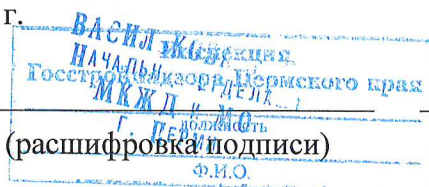 г.
ВАСИЛ
Инспекция
НАЧАЛЬН ОТДЕЛА
Госстройнадзора Пермского края
МКЖД и МО
Г. ПЕРМИ
должность
(расшифровка подписи)
Ф.И.О.